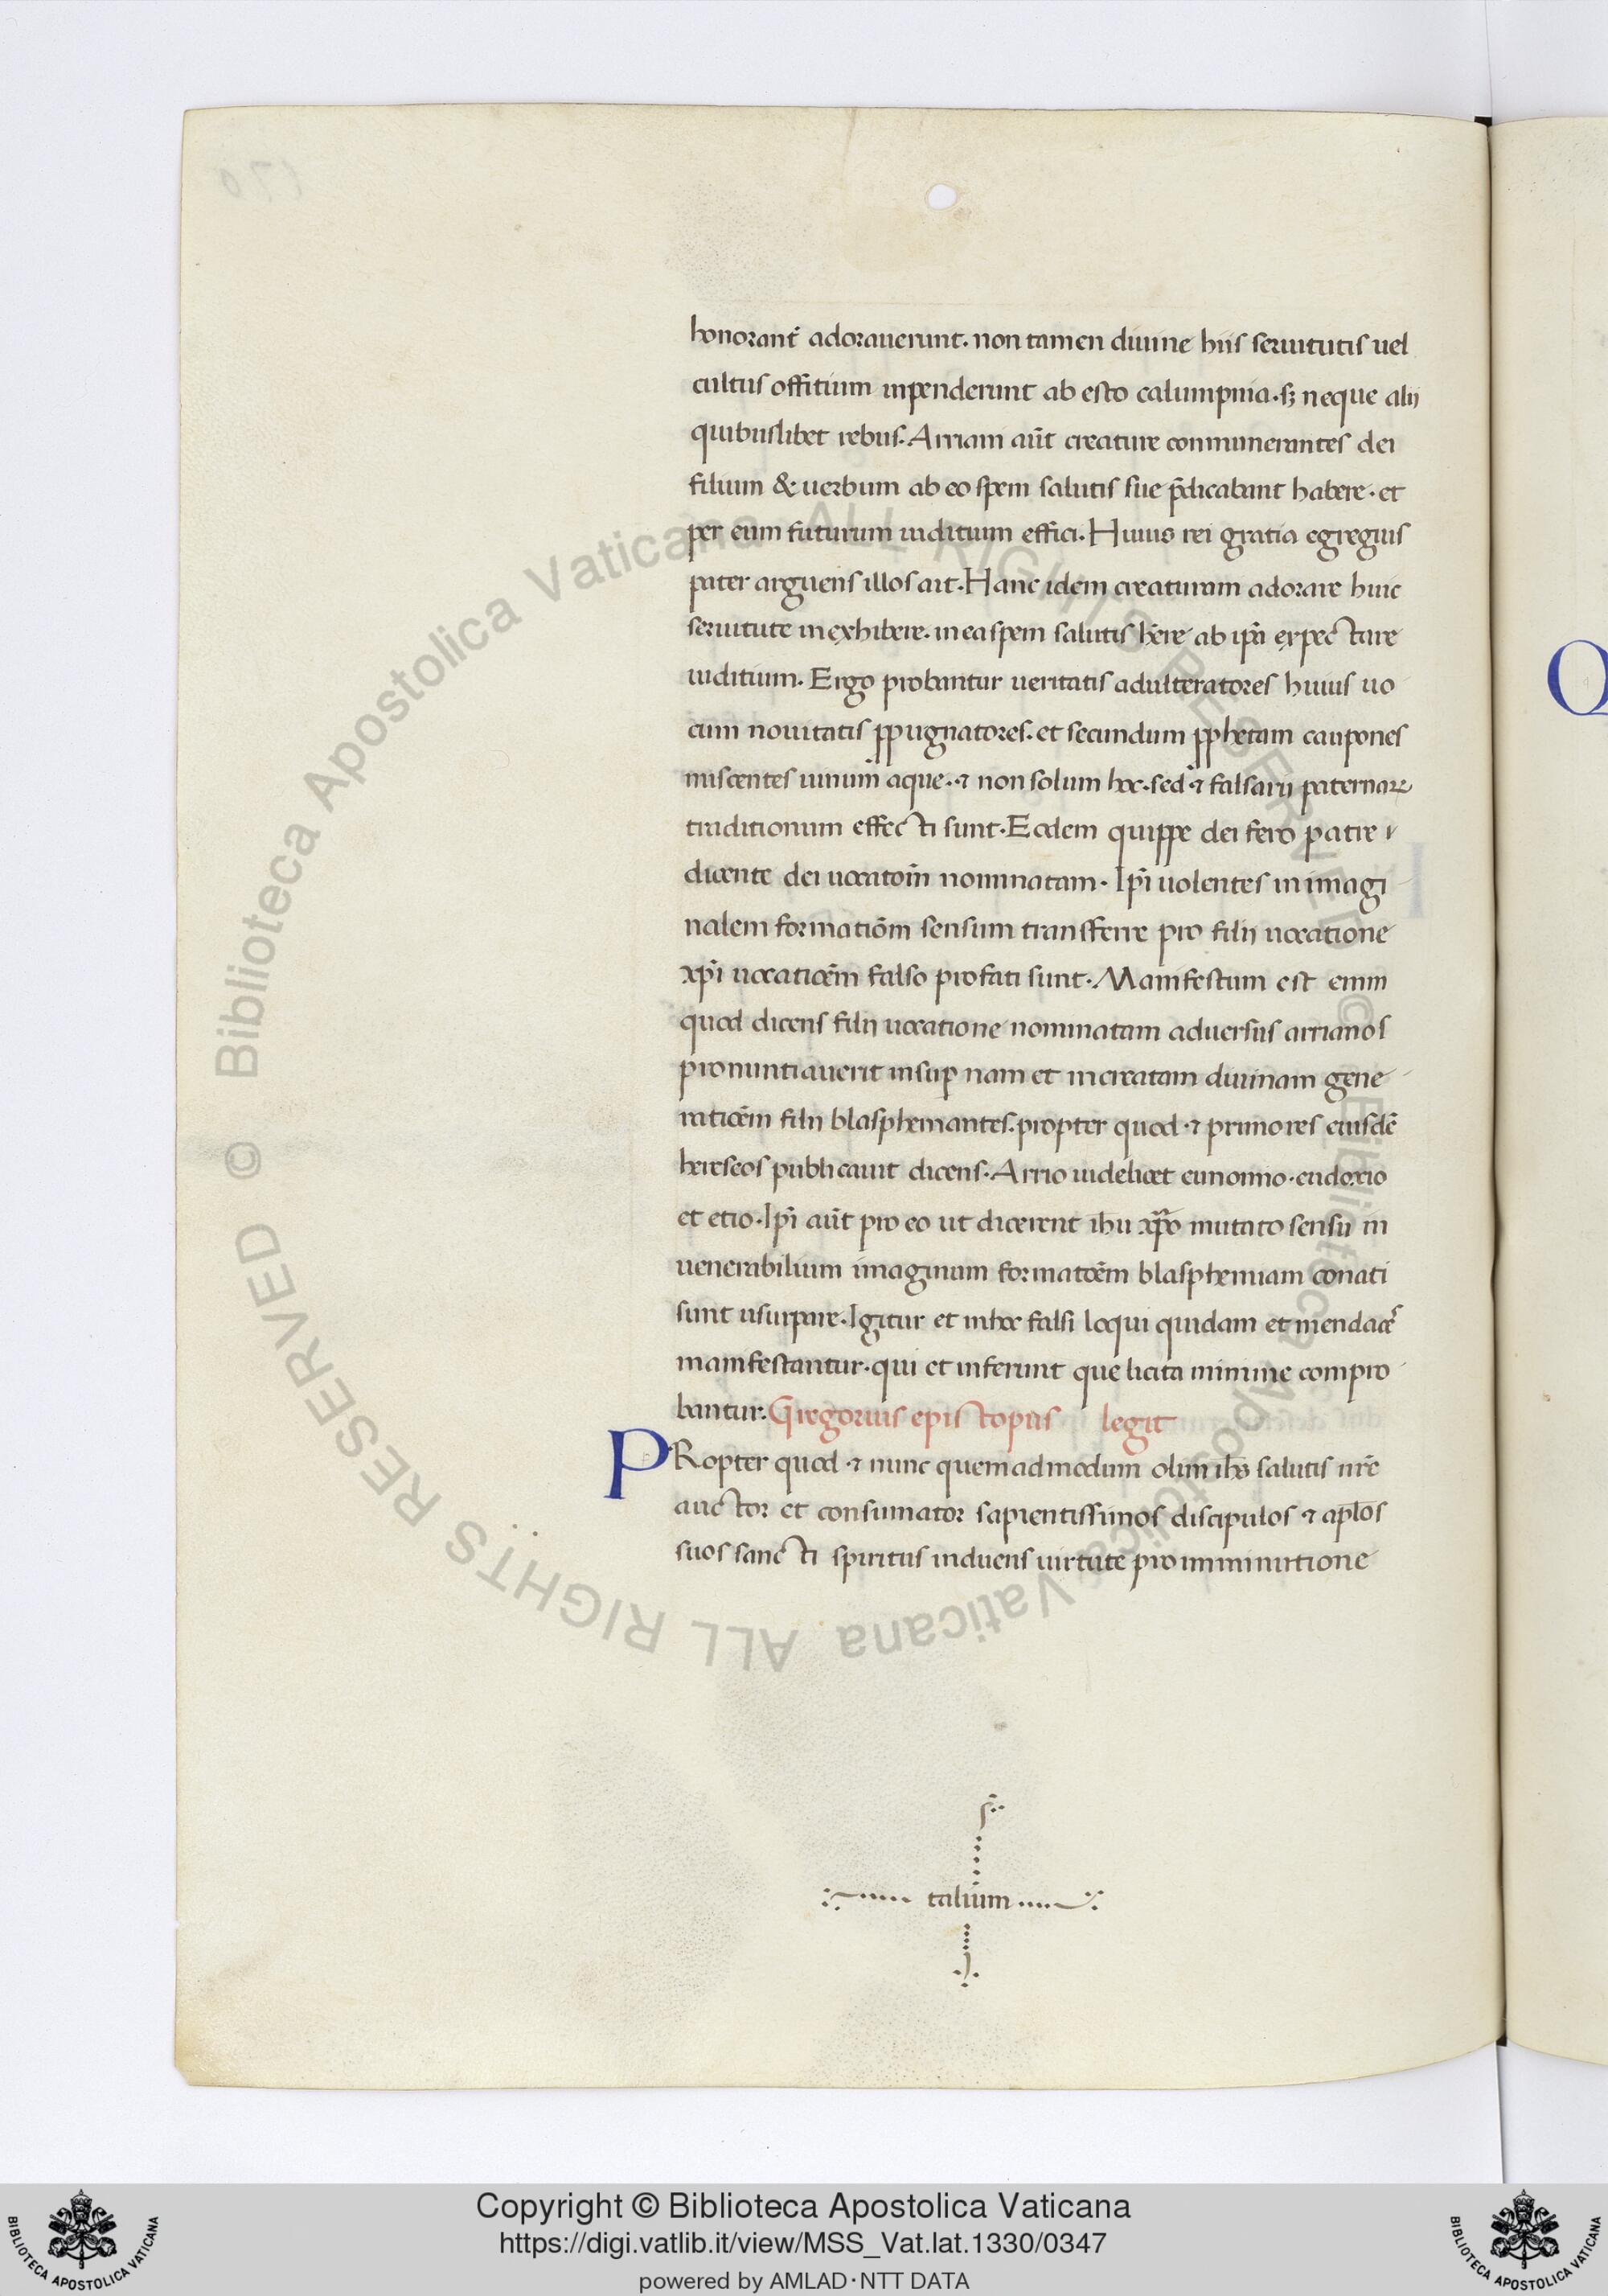 honorant᷑ adorauerunt. non tamen diuine hiis seruitutis uel
cultus offitium inpenderunt ab esto calumpnia. sꝫ neque alij
quibuslibet rebus. Arriani aūt creature connumerantes dei
filium & uerbum ab eo spem salutis sue p̄dicabant habere. et
per eum futurum iuditium effici. Huius rei gratia egregius
pater arguens illos ait. Hanc idem creaturam adorare huic
seruitute in exhibere. in ea spem salutis hēre ab ip̄i expectare
iuditium. Ergo probantur ueritatis adulteratores huius uo
cum nouitatis ꝓpugnatores. et secundum ꝓphetam caupones
miscentes uinum aque. ⁊ non solum hoc. sed ⁊ falsarij paternaꝝ
traditionum effecti sunt. Eodem quippe dei fero patre
dicente dei uocatoīn nominatam. Ip̄i uolentes in imagi
nalem formatiōm sensum transferre pro filij uocatione
xp̄i uocatioēm falso profati sunt. Manifestum est enim
quod dicens filij uocatione nominatam aduersus arrianos
pronuntiauerit insuꝑ nam et increatam diuinam gene
ratioēm filij blasphemantes. propter quod ⁊ primores eiusdē
hereseos publicauit dicens. Arrio uidelicet eunomio. eudoxio
et etio. Ip̄i aūt pro eo ut dicerent ihu xp̄o mutato sensu in
uenerabilium imaginum formatoēm blasphemiam conati
sunt usurpare. Igitur et in hoc falsi loqui quidam et mendaceˢ
manifestantur. qui et inferunt que licita minime compro
bantur. Gregorius episcopus legit
PRopter quod ⁊ nunc quemadmodum olim ihs̄ salutis nr̄e
auctor et consumator sapientissimos discipulos ⁊ apl̄os
suos sancti spiritus induens uirtute pro imminutione
talium
Copyright © Biblioteca Apostolica Vaticana
https://digi.vatlib.it/view/MSS_Vat.lat.1330/0347
powered by AMLAD·NTT DATA
BIBLIOTECA APOSTOLICA VATICANA
BIBLIOTECA APOSTOLICA VATICANA
© Biblioteca Apostolica Vaticana ALL RIGHTS RESERVED © Biblioteca Apostolica Vaticana ALL RIGHTS RESERVED
Q